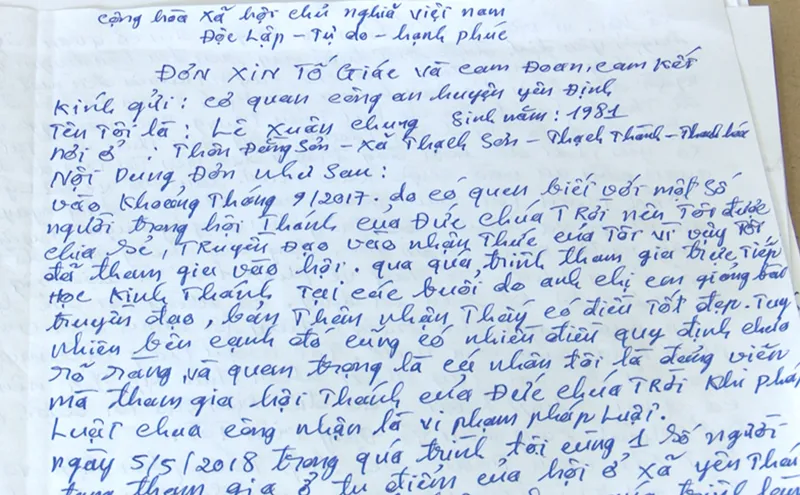 cộng hòa xã hội chủ nghĩa việt nam
Độc Lập - Tự do - hạnh phúc
ĐƠN XIN TỐ GIÁC và cam ĐOAN, cam kết
Kính gửi: cơ quan công an huyện yên Định
Tên Tôi là: Lê Xuân chung Sinh năm: 1981
nơi ở : Thôn Đăng Sơn - xã Thạch Sơn - Thạch Thành - Thanh hóa
Nội Dung Đơn như Sau:
vào Khoảng Tháng 9/2017. do có quen biết với một Số
người trong hội Thánh của Đức chúa TRời nên Tôi được
chia Sẻ, TRuyền Đạo vào nhận Thức của Tôi vì vậy Tôi
đã tham gia vào hội. qua quá trình tham gia trực Tiếp
Học Kinh Thánh Tại các buổi do anh chị em giảng bài
truyền đạo, bản Thân nhận Thấy có điều Tốt đẹp. Tuy
nhiên bên cạnh đó cũng có nhiều điều quy định chưa
rõ ràng, và quan trọng là cá nhân tôi là đảng viên
mà tham gia hội Thánh của Đức chúa TRời Khi pháp
Luật chưa công nhận là vi phạm pháp Luật.
ngày 5/5/2018 trong quá trình tôi cùng 1 Số người
tham gia ở tụ điểm của hội ở xã yên